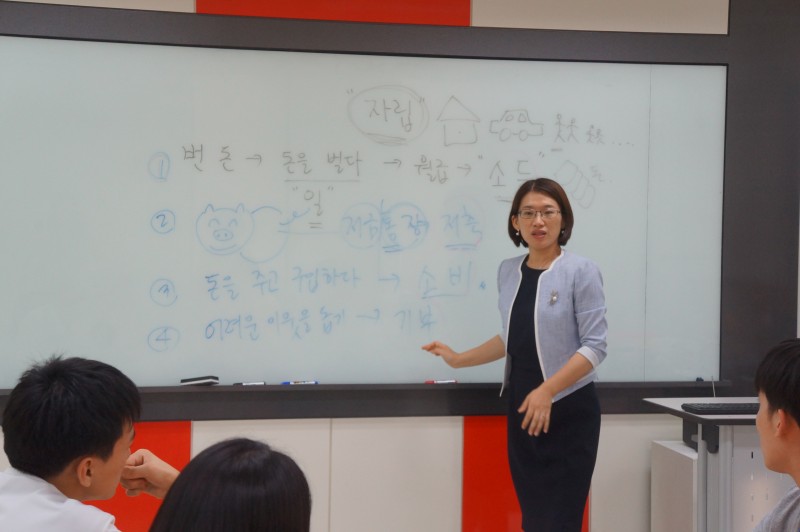 "자립"
① 번 돈 → 돈을 벌다 → 월급 → "소득"
"일"
② 저금통 장 저축
③ 돈을 주고 구입하다 → 소비.
④ 어려운 이웃을 돕기 → 기부